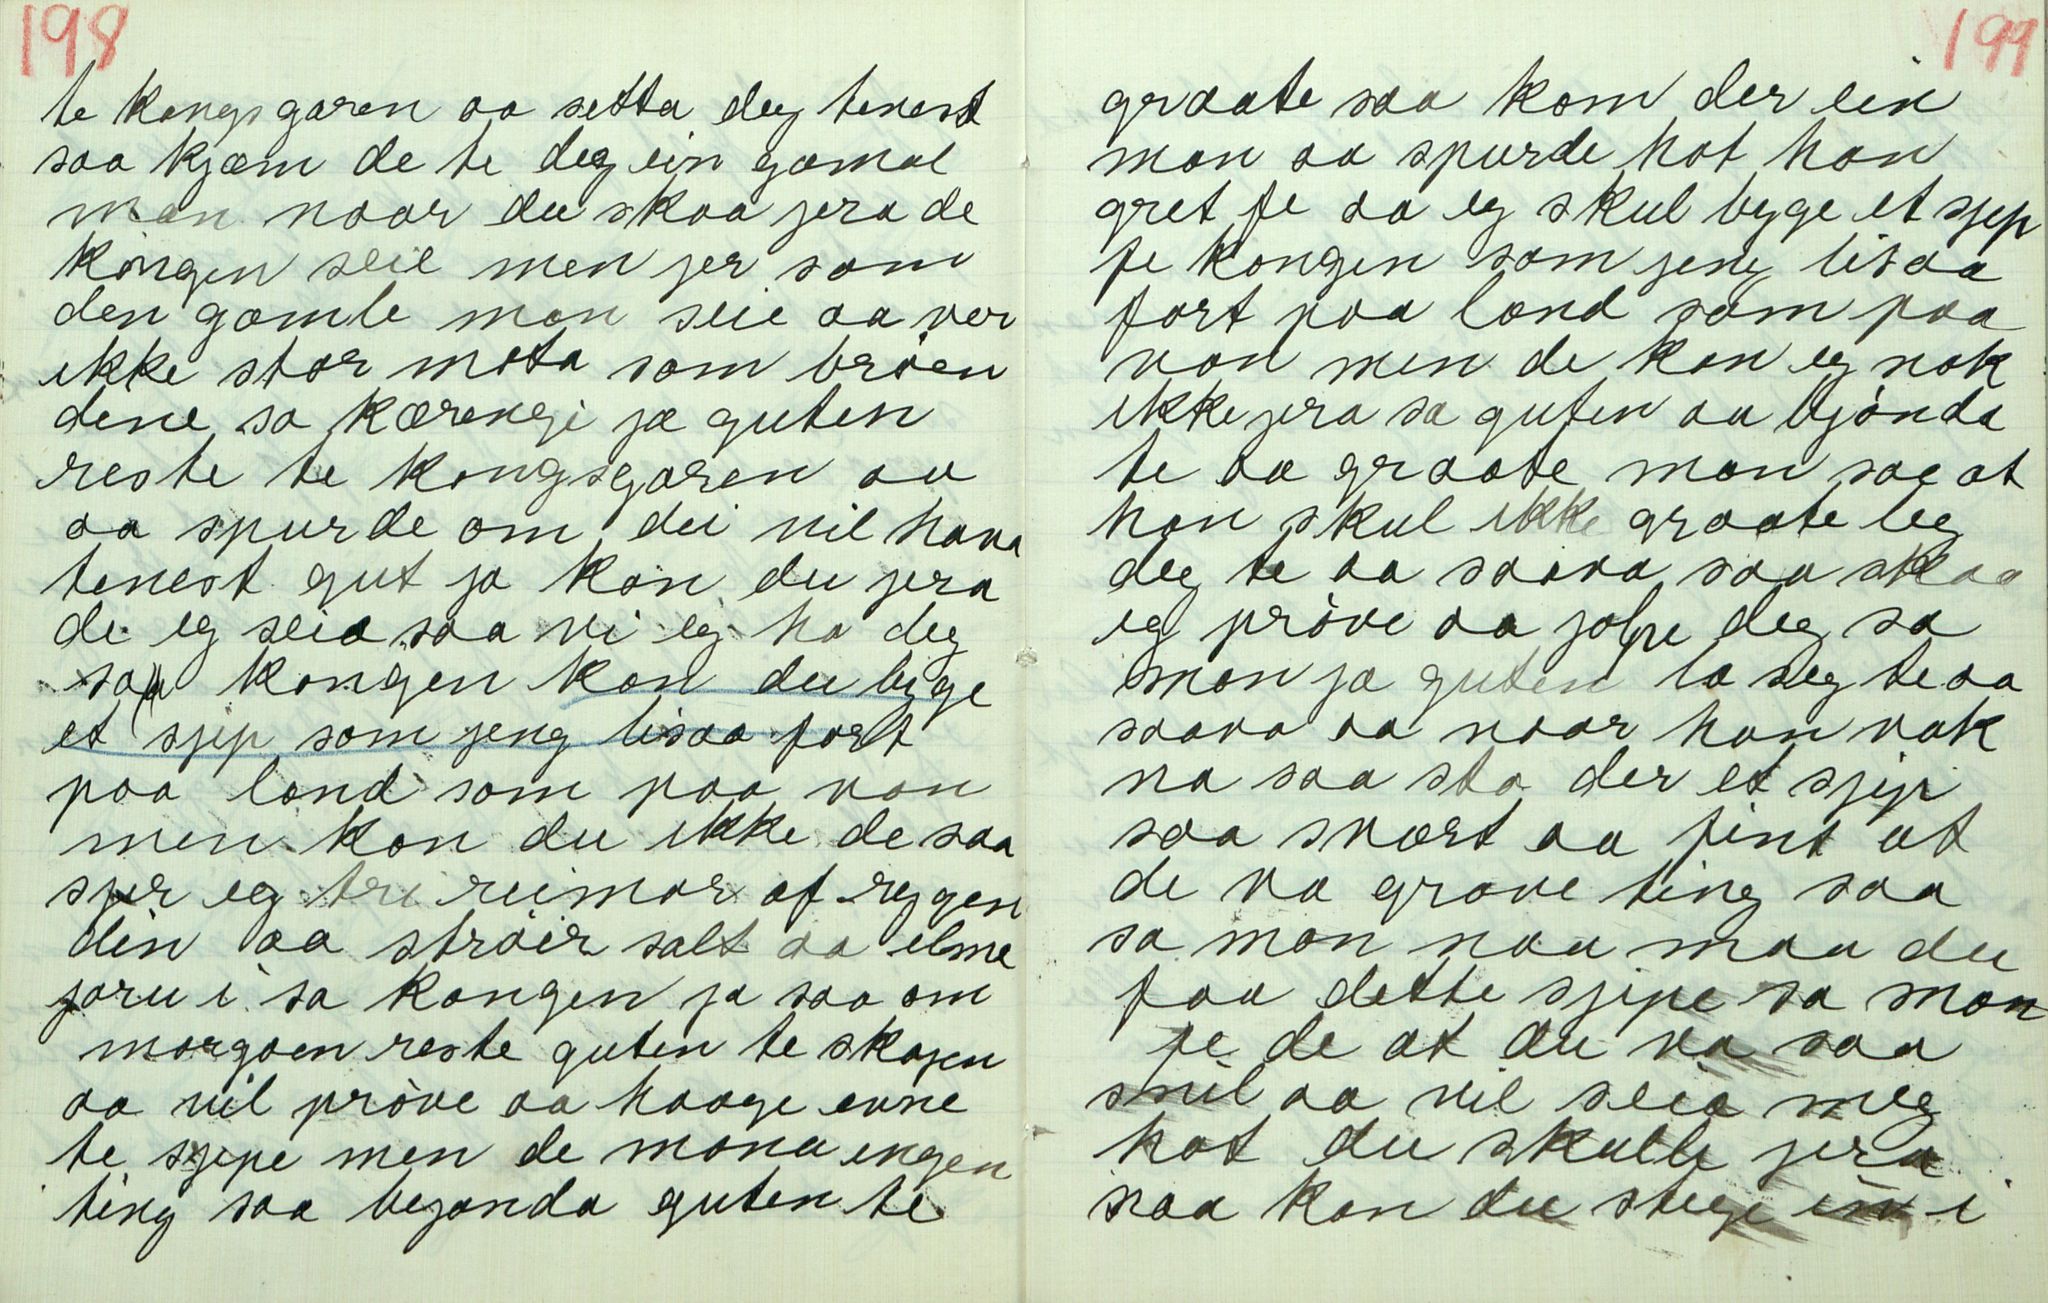 198
te kongsgaren aa setta deg tenest
saa kjæm de te deg ein gamal
man naar du skaa jera de
kongen seie men jer som
den gamle man seie aa ver
ikke stor mota som brøen
dine sa kærengi ja guten
reste te kongsgaren aa
aa spurde om dei vil hava
tenest gut ja kan du jera
de eg seia saa vi eg ha deg
saa kongen kan du byge
et sjip som jeng lisaa fort
paa land som paa van
men kan du ikke de saa
sjer eg tri reimar af ryggen
din aa strøir salt aa elme
jøru i sa kongen ja saa om
morgaen reste guten te skogen
aa vil prøve aa haage evne
te sjipe men de mona ingen
ting saa bejonda guten te
199
graate saa kom der ein
man aa spurde hot han
gret fe aa eg skul byge et sjip
fe kongen som jeng lisaa
fort paa land som paa
van men de kan eg nok
ikke jera sa guten aa bjønda
te aa graate man sae at
han skul ikke graate leg
deg te aa saava saa skaa
eg prøve aa jolpe deg sa
man ja guten la seg te aa
saava aa naar han vak
na saa sta der et sjip
saa svært aa fint at
de va grove ting saa
sa man naa maa du
faa dette sjipe sa man
fe de at du va saa
snil aa vil seia meg
hot du skulle jera
saa kan du stige in i